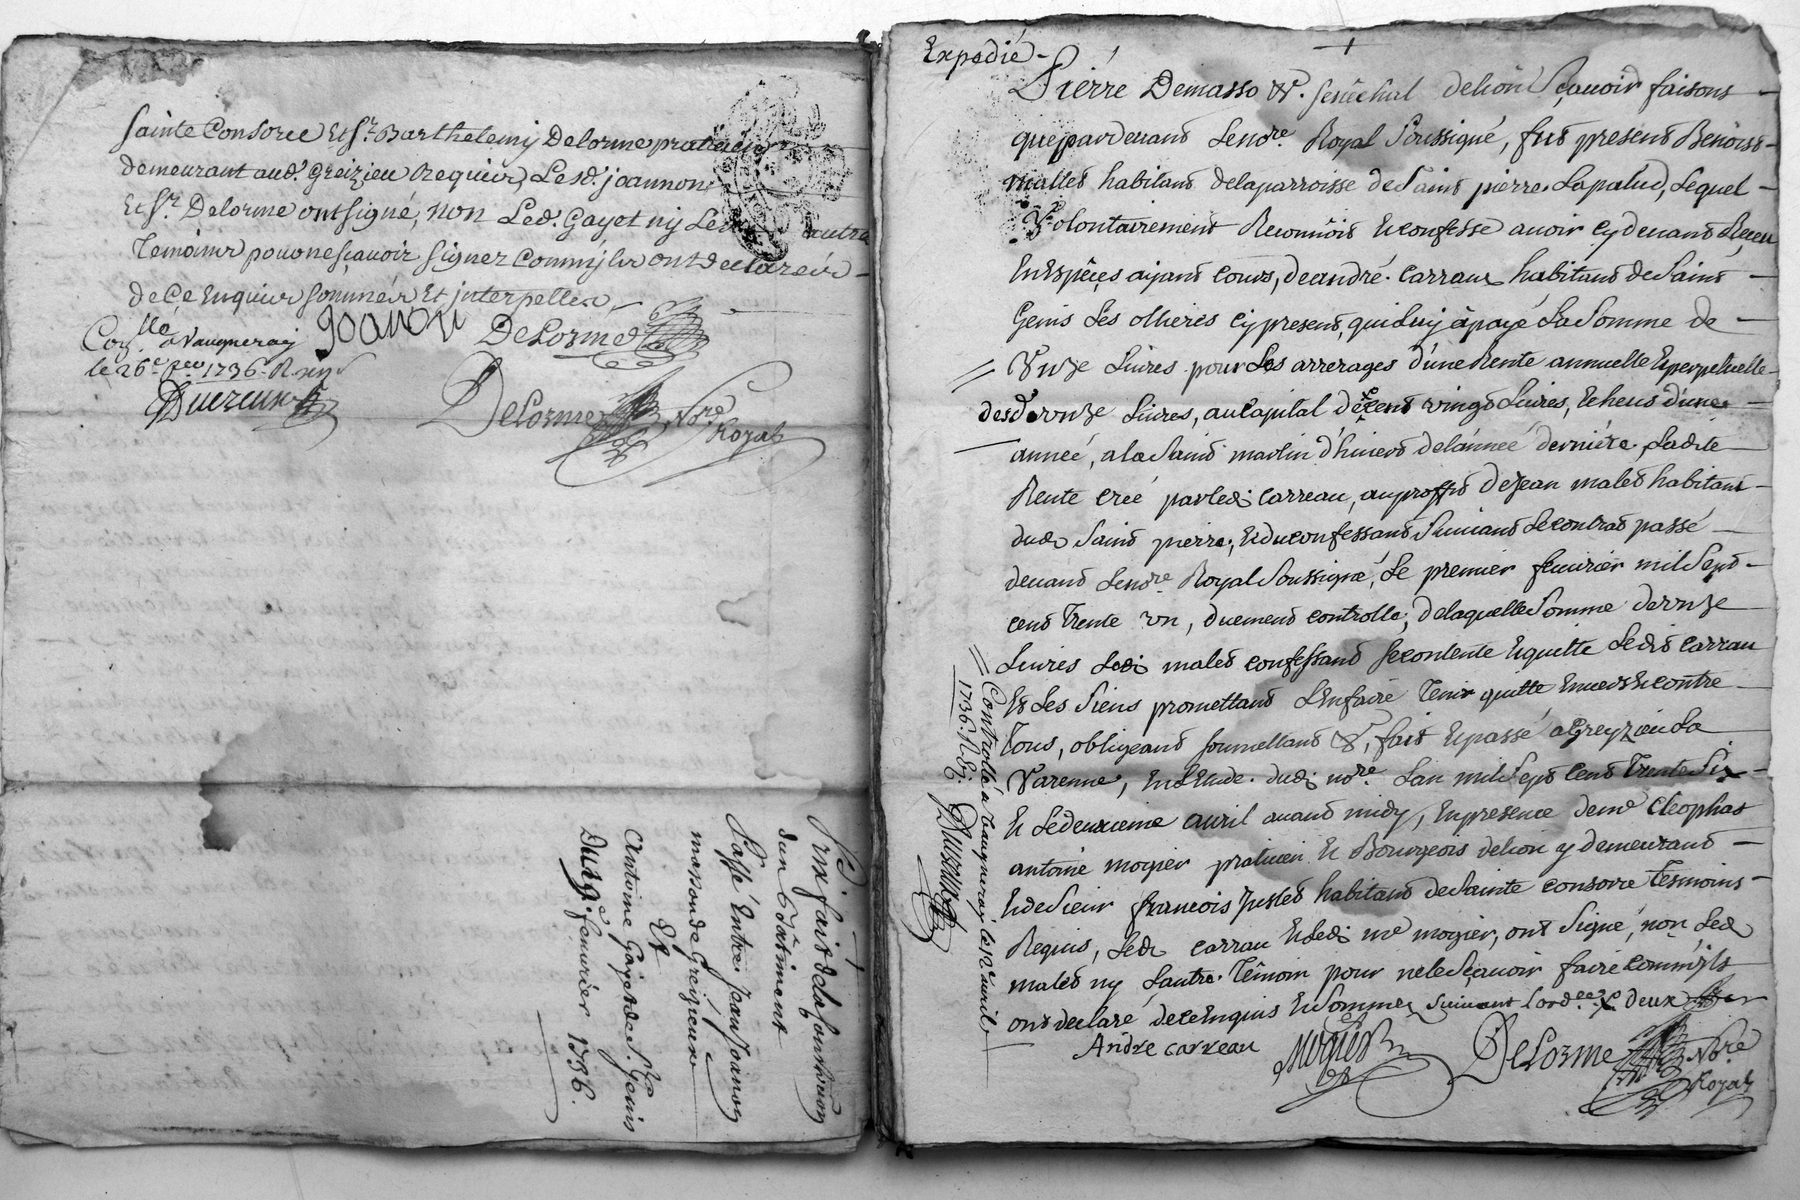 Sainte Consorce Et Sr. Barthelemy Delorme praticien
demeurant aud. Greizieu Requier, Lesd. joannon
Et Sr. Delorme ont signé, non Led. Gayet ny Led. autre
Temoins pour ne sçavoir signer Comm'ils ont declarer
de ce Enquier sommér Et interpeller
Con.llé a Vaugneray
le 26e. 1736. R
joanon
DeLorme
DeLorme Nore.
Royal
Prix fait de la
dun Batiment
Passé Entre Jean Joanon
masson de Greizieu
Et
Antoine Gayet de St. Genis
Du 19e. fevurier 1736.
Expedié -
Pierre Demasso &. senéchal delion Sçavoir faisons
que pardevant Lenore. Royal Soussigné, fut present Benoist
mallet habitant delaparroisse de Saint pierre Lapalud, Lequel
Volontairement Reconnoit Econfesse avoir cy devant Receu
En Espêces ajant cours, de andré carraux habitant de Saint
Genis Les ollieres cy present, qui Luy à payé La Somme de
Unze Livres pour Les arrerages d'une Rente annuelle Eperpetuelle
desd. unze Livres, au Capital de cent vingt Livres, Echeus d'une
année, ala Saint martin d'hivert delannée derniére, Ladite
Rente creé par Ledi. Carreau, auproffit de Jean malet habitant
dudi. Saint pierre, Educonfessant Suivant Lecontrat passé
devant Lenore. Royal Soussigné, Le premier fevurier mil Sept
cent Trente un, duement controllé, delaquelle Somme dunze
Livres Ledi. malet confessant Secontente Equitte Ledit carrau
Et Les Siens promettant L'enfaire Tenir quitte Envers Econtre
Tous, obligeant soumettant &, fait Epassé a Greyzieu La
Varenne, En L'Etude dudi. nore. Lan mil Sept Cent Trente Six
E Ledeuxieme avril avant midy, Enpresence deme. Cleophas
antoine mogier praticien E Bourgeois delion y demeurant
Ede Sieur françois habitant de Sainte consorce Tesmoins
Requis, Ledi. carrau E Ledi. me mogier, ont Signé, non Led.
malet ny Lautre Témoin pour ne le Sçavoir faire comm'ils
ont declaré de ce Enquis E Sommer Suivant Lord.ce deux
André carreau
Mogier
DeLorme Nore.
Royal
Controllé a Vaugneray le 12e. avril
1736. R